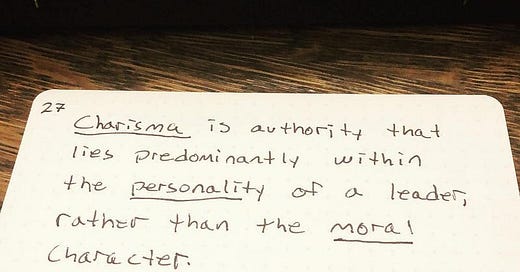 27
Charisma is authority that
lies predominantly within
the personality of a leader,
rather than the moral
character.